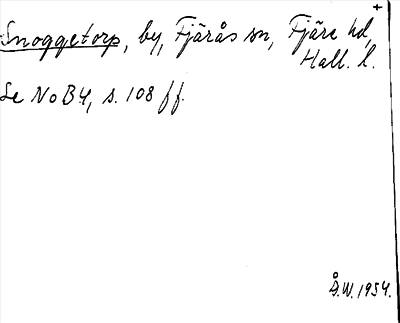 Snoggetorp, by, Fjärås sn, Fjäre hd,
Hall. l.
Se NoB 4, s. 108 ff.
Å.W. 1954.